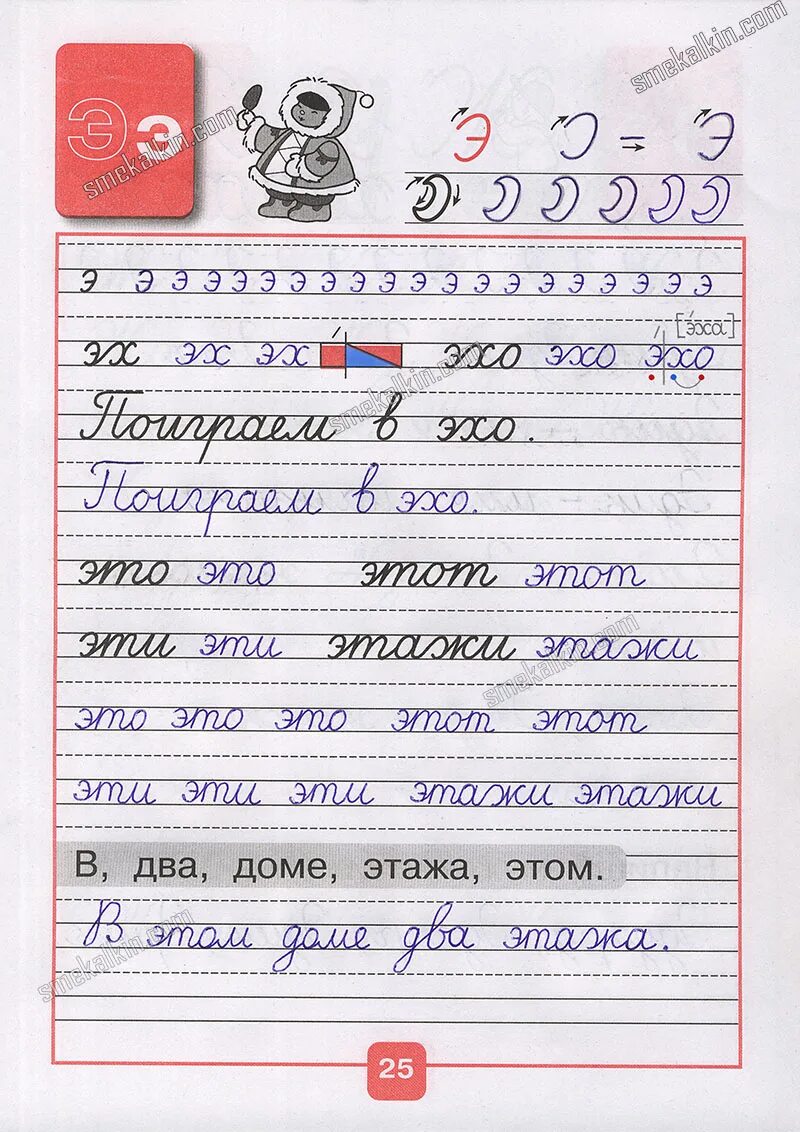 Ээ
Э Э = Э
э э э э э э э э э э э э э э э э э э э э
[э́ха]
эх эх эх эхо эхо эхо
Поиграем в эхо.
Поиграем в эхо.
это это этот этот
эти эти этажи этажи
это это это этот этот
эти эти эти этажи этажи
В, два, доме, этажа, этом.
В этом доме два этажа.
25
smekalkin.com
smekalkin.com
smekalkin.com
smekalkin.com
smekalkin.com